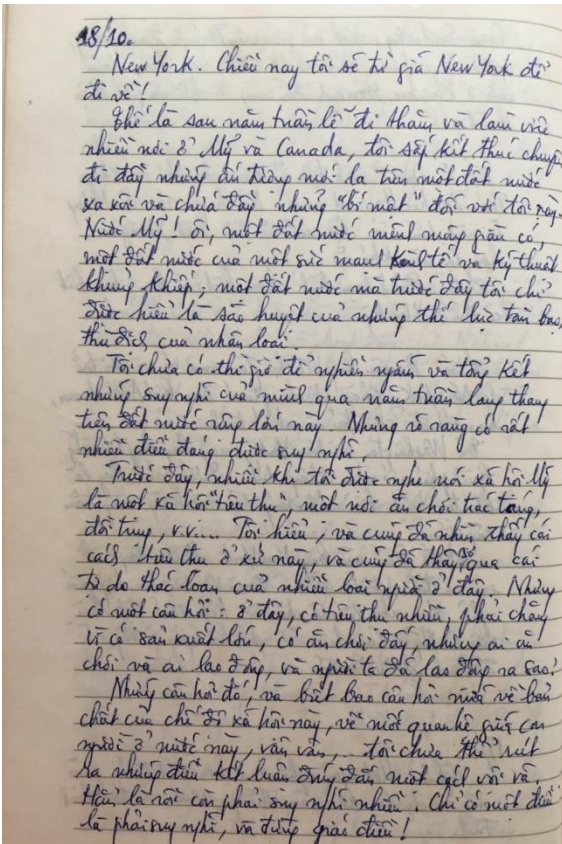 18/10.
New York. Chiều nay tôi sẽ từ giã New York để
đi về!
Thế là sau năm tuần lễ đi thăm và làm việc
nhiều nơi ở Mỹ và Canada, tôi sắp kết thúc chuyến
đi đầy những ấn tượng mới lạ trên một đất nước
xa xôi và chứa đầy những "bí mật" đối với tôi này.
Nước Mỹ! ôi, một đất nước mênh mông giàu có,
một đất nước của một sức mạnh kinh tế và kỹ thuật
khủng khiếp; một đất nước mà trước đây tôi chỉ
được hiểu là sào huyệt của những thế lực tàn bạo,
thù địch của nhân loại.
Tôi chưa có thì giờ để nghiền ngẫm và tổng kết
những suy nghĩ của mình qua năm tuần lang thang
trên đất nước rộng lớn này. Nhưng rõ ràng có rất
nhiều điều đáng được suy nghĩ.
Trước đây, nhiều khi tôi được nghe nói xã hội Mỹ
là một xã hội "tiêu thụ", một nơi ăn chơi trác táng,
đồi trụy, v.v.... Tôi hiểu, và cũng đã nhìn thấy cái
cách tiêu thụ ở xứ này, và cũng đã thấy qua cái
tự do thác loạn của nhiều loại người ở đây. Nhưng
có một câu hỏi: ở đây, có tiêu thụ nhiều, phải chăng
vì có sản xuất lớn, có ăn chơi đấy, nhưng ai ăn
chơi và ai lao động, và người ta đã lao động ra sao?
Những câu hỏi đó, và biết bao câu hỏi nữa về bản
chất của chế độ xã hội này, về mối quan hệ giữa con
người ở nước này, vân vân... tôi chưa thể rút
ra những điều kết luận đúng đắn một cách vội vã.
Hẳn là rồi còn phải suy nghĩ nhiều. Chỉ có một điều
là phải suy nghĩ, và đừng giáo điều!